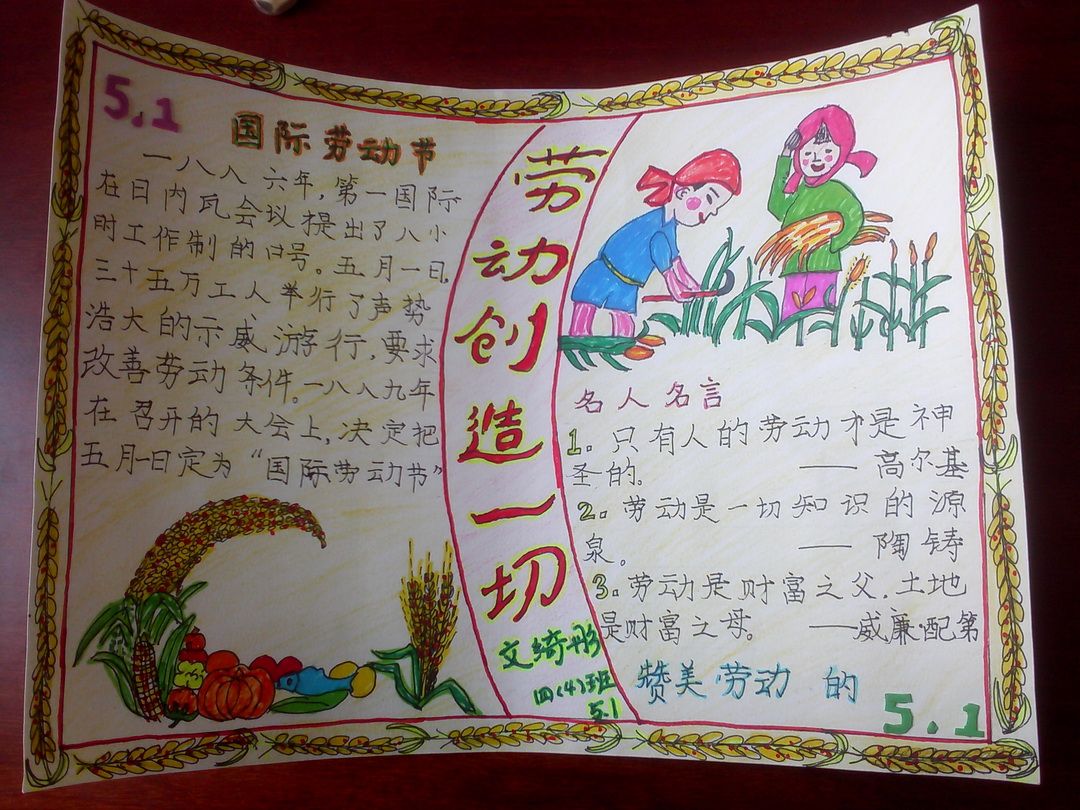 5.1
国际劳动节
一八八六年,第一国际
在日内瓦会议提出了八小
时工作制的口号。五月一日,
三十五万工人举行了声势
浩大的示威游行,要求
改善劳动条件。一八八九年
在召开的大会上,决定把
五月一日定为“国际劳动节”
劳动创造一切
文绮彤
四(4)班
5.1
名人名言
1。只有人的劳动才是神
圣的。 —— 高尔基
2。劳动是一切知识的源
泉。 —— 陶铸
3。劳动是财富之父,土地
是财富之母。 ——威廉·配第
赞美劳动的
5.1